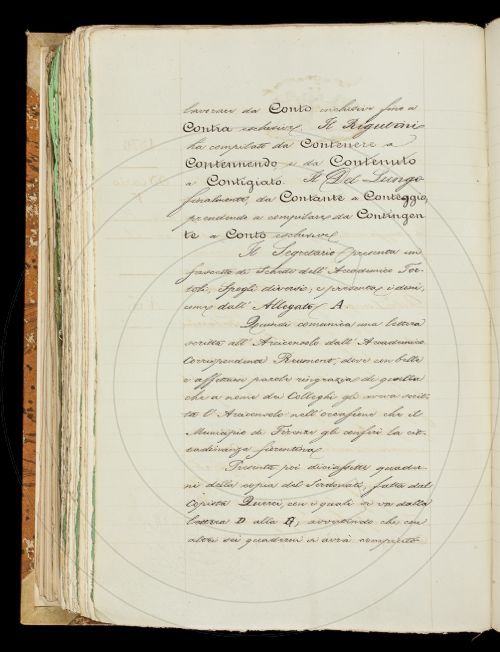 lavorare da Conto inclusive fino a
Contra esclusive. Il Rigutini
ha compilato da Contenere a
Contennendo e da Contenuto
a Contigiato. Il Del Lungo
finalmente, da Contante a Conteggio,
prendendo a compilare da Contingen
te a Conto esclusive.
Il Segretario presenta un
fascetto di Schede dell'Accademico Tor-
toli, Spogli diversi; e presenta, i
come dall'Allegato A.
Quindi comunica una lettera
scritta all'Arciconsolo dall'Accademico
Corrispondente Reumont, dove con belle
e affettuose parole ringrazia di quella
che a nome dei Colleghi gli aveva scrit-
ta l'Arciconsolo nell'occasione che il
Municipio di Firenze gli conferì la cit-
tadinanza fiorentina.
Presenta poi diciassette quader-
ni della copia del Serdonati, fatta dal
Copista Querci, con i quali si va dalla
lettera D alla G; avvertendo che con
altri sei quaderni si avrà compiuto